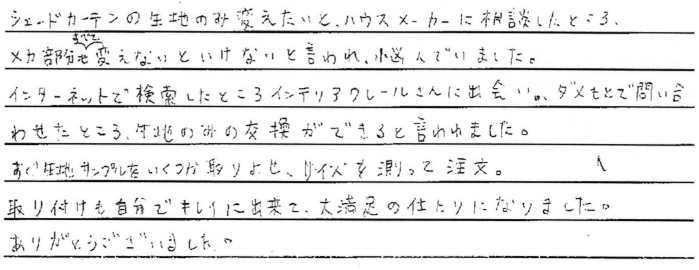 シェードカーテンの生地のみ変えたいと、ハウスメーカーに相談したところ、
メカ部分もすべて変えないといけないと言われ、悩んでいました。
インターネットで検索したところインテリアクレールさんに出会い、ダメもとで問い合
わせたところ、生地のみの交換ができると言われました。
すぐ生地サンプルをいくつか取りよせ、サイズを測って注文。
取り付けも自分でキレイに出来て、大満足の仕上りになりました。
ありがとうございました。